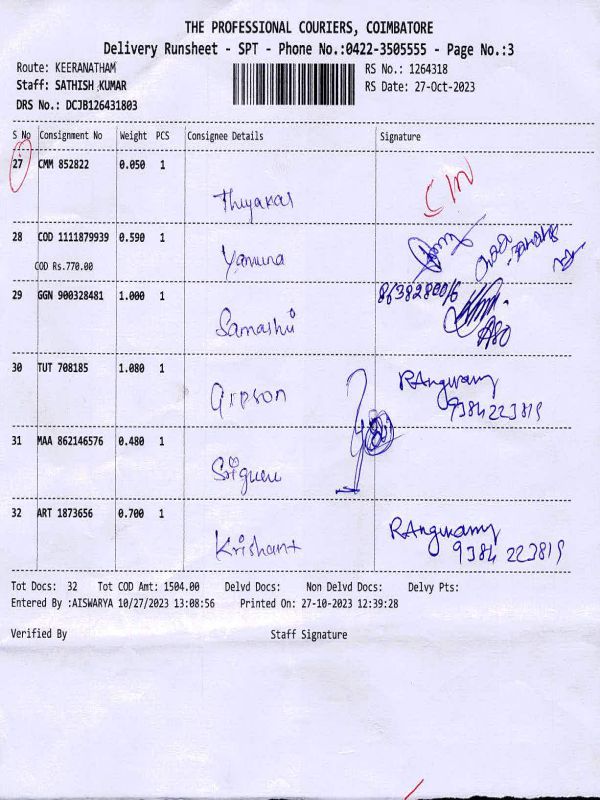 THE PROFESSIONAL COURIERS, COIMBATORE
Delivery Runsheet - SPT - Phone No.:0422-3505555 - Page No.:3
Route: KEERANATHAM
RS No.: 1264318
Staff: SATHISH KUMAR
RS Date: 27-Oct-2023
DRS No.: DCJB126431803
S No Consignment No Weight PCS Consignee Details Signature
27 CMM 852822 0.050 1
Thiyakar
28 COD 1111879939 0.590 1
COD Rs.770.00
Yamuna
29 GGN 900328481 1.000 1
30 TUT 708185 1.080 1
9384223819
31 MAA 862146576 0.480 1
32 ART 1873656 0.700 1
Krishant
9384 223819
Tot Docs: 32 Tot COD Amt: 1504.00 Delvd Docs: Non Delvd Docs: Delvy Pts:
Entered By :AISWARYA 10/27/2023 13:08:56 Printed On: 27-10-2023 12:39:28
Verified By Staff Signature